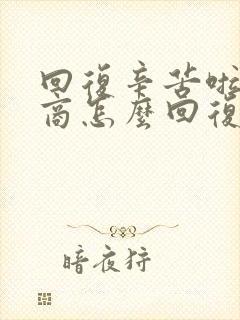 回復辛苦啦
商怎麼回復
暗夜狩